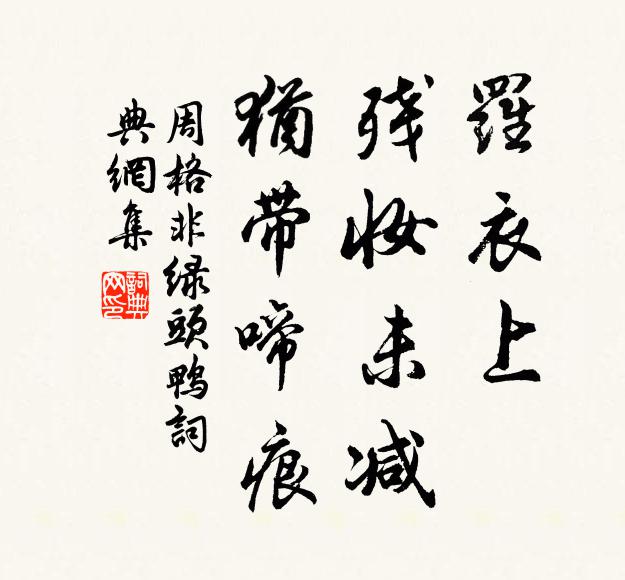 羅衣上
残妝未减
猶帶啼痕
周格非緑頭鴨詞
典網集
詞典网印